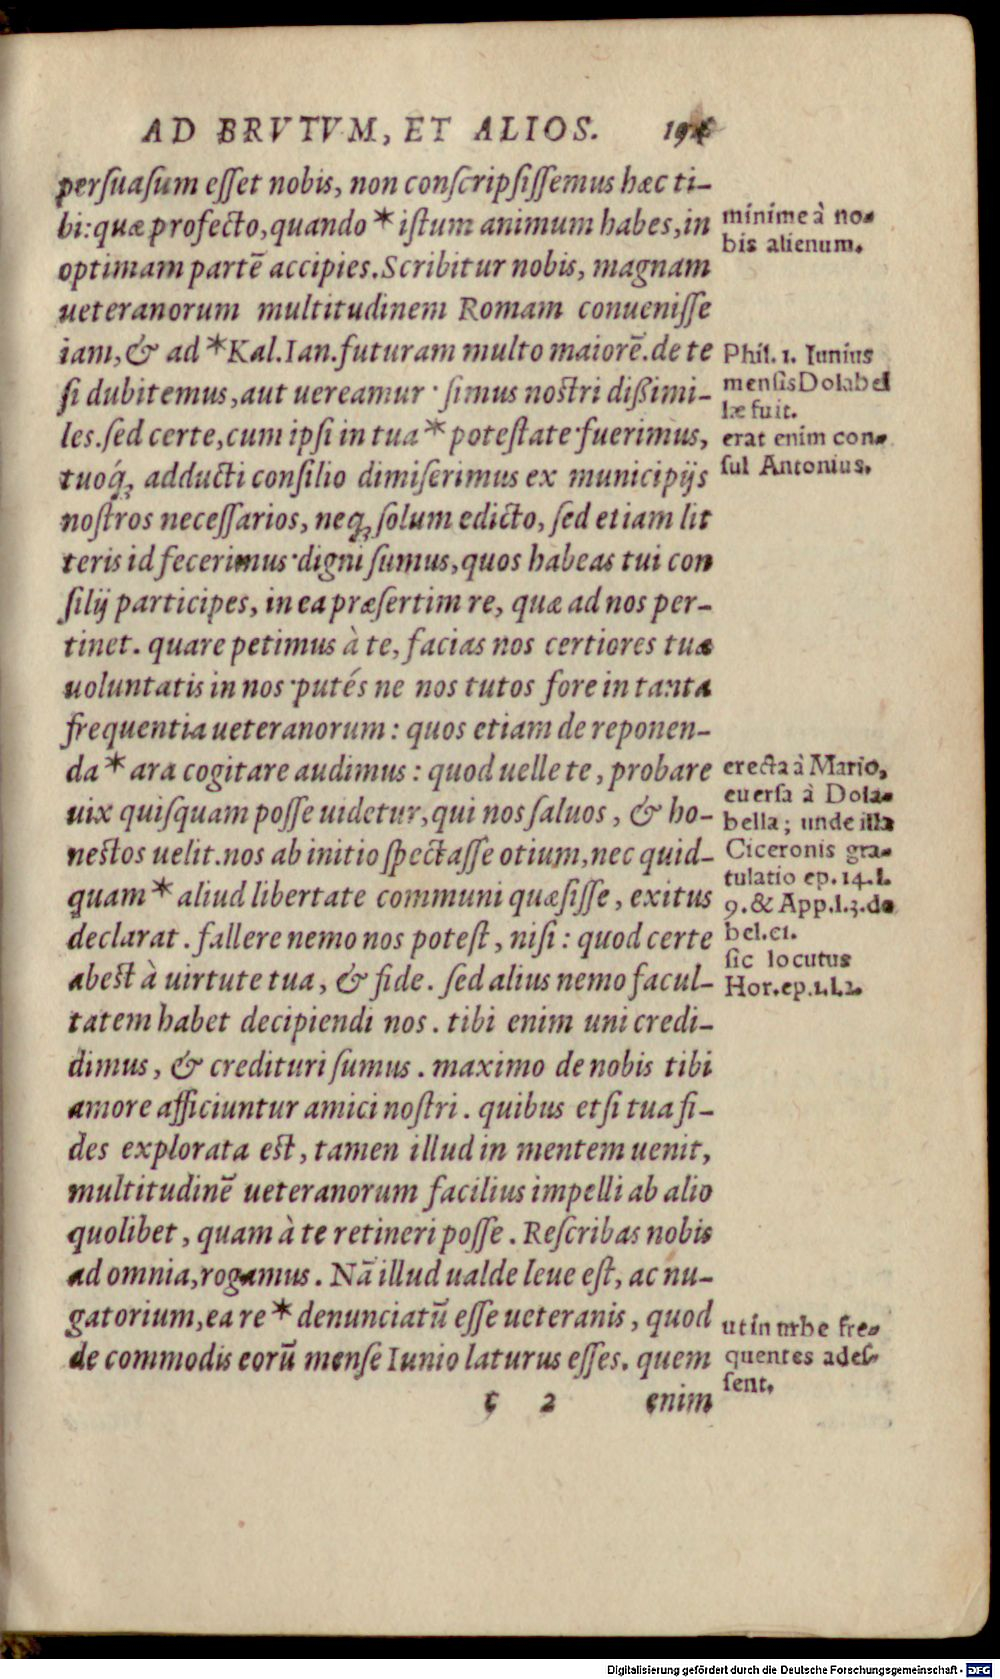 AD BRVTVM, ET ALIOS.
persuasum esset nobis, non conscripsissemus hæc ti-
bi: quæ profecto, quando * istum animum habes, in
optimam partē accipies. Scribitur nobis, magnam
ueteranorum multitudinem Romam conuenisse
iam, & ad *Kal. Ian. futuram multo maiorē. de te
si dubitemus, aut uereamur · simus nostri dißimi-
les. sed certe, cum ipsi in tua * potestate fuerimus,
tuoq́; adducti consilio dimiserimus ex municipijs
nostros necessarios, neq; solum edicto, sed etiam lit
teris id fecerimus · digni sumus, quos habeas tui con
silij participes, in ea præsertim re, quæ ad nos per-
tinet. quare petimus à te, facias nos certiores tuæ
uoluntatis in nos · putés ne nos tutos fore in tanta
frequentia ueteranorum: quos etiam de reponen-
da * ara cogitare audimus: quod uelle te, probare
uix quisquam posse uidetur, qui nos saluos, & ho-
nestos uelit. nos ab initio spectasse otium, nec quid-
quam * aliud libertate communi quæsisse, exitus
declarat. fallere nemo nos potest, nisi: quod certe
abest à uirtute tua, & fide. sed alius nemo facul-
tatem habet decipiendi nos. tibi enim uni credi-
dimus, & credituri sumus. maximo de nobis tibi
amore afficiuntur amici nostri. quibus etsi tua fi-
des explorata est, tamen illud in mentem uenit,
multitudinē ueteranorum facilius impelli ab alio
quolibet, quam à te retineri posse. Rescribas nobis
ad omnia, rogamus. Nā illud ualde leue est, ac nu-
gatorium, ea re * denunciatū esse ueteranis, quod
de commodis eorū mense Iunio laturus esses. quem
2 enim
minime à no-
bis alienum.
Phil. 1. Iunius
mensis Dolabel
læ fuit.
erat enim con-
sul Antonius.
erecta à Mario,
euersa à Dola-
bella; unde illa
Ciceronis gra-
tulatio ep. 14. l.
9. & App. l. 3. de
bel. ci.
sic locutus
Hor. ep. 1. l. 2.
ut in urbe fre-
quentes ades-
sent.
Digitalisierung gefördert durch die Deutsche Forschungsgemeinschaft - DFG